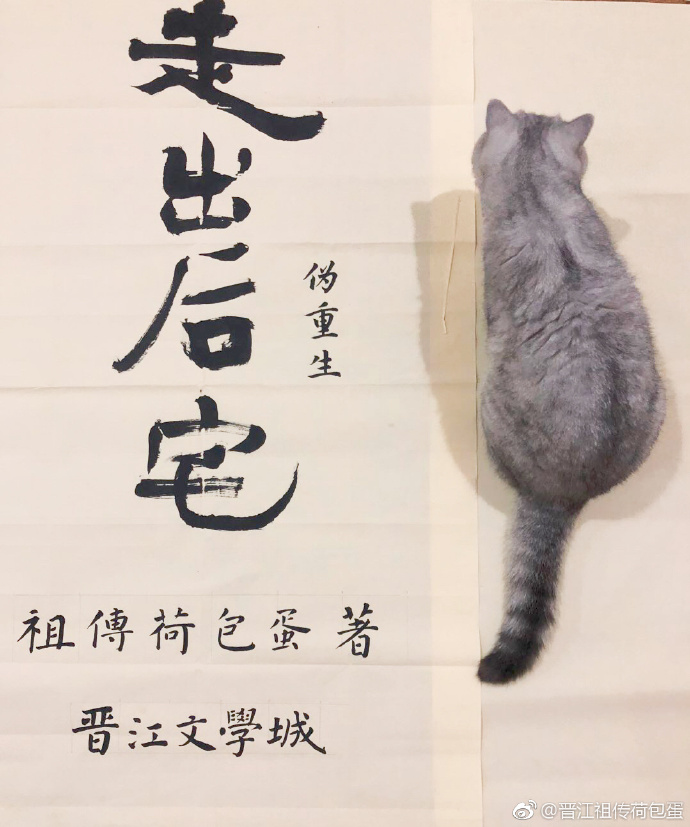 走出后宅
伪重生
祖傳荷包蛋著
晋江文學城
@晋江祖传荷包蛋